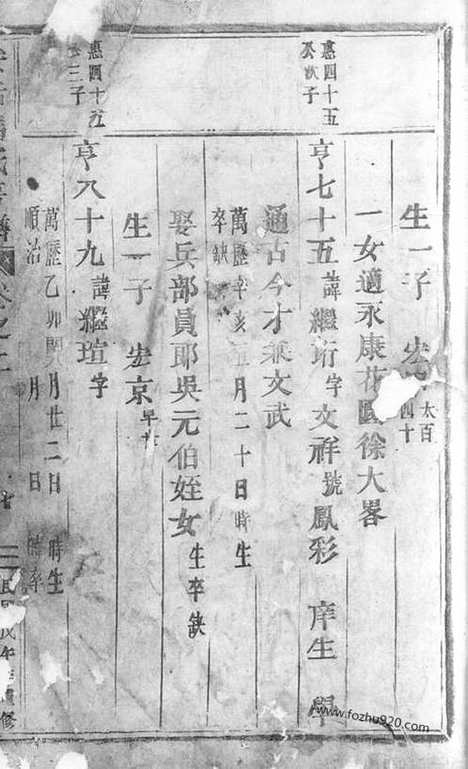 生一子 宏 太百四十
一女適永康花園徐大畧
惠四十五
公次子
亨七十五諱繼珩字文祥號鳳彩 庠生 學
通古今才兼文武
萬歷辛亥五月二十日時生
卒缺
娶兵部員郎吳元伯姪女 生卒缺
生一子 宏京早世
惠四十五
公三子
亨八十九諱繼瑄字
萬歷乙卯閏月廿二日 時生
順治 月 日 時卒
卷之
www.fozhu920.com